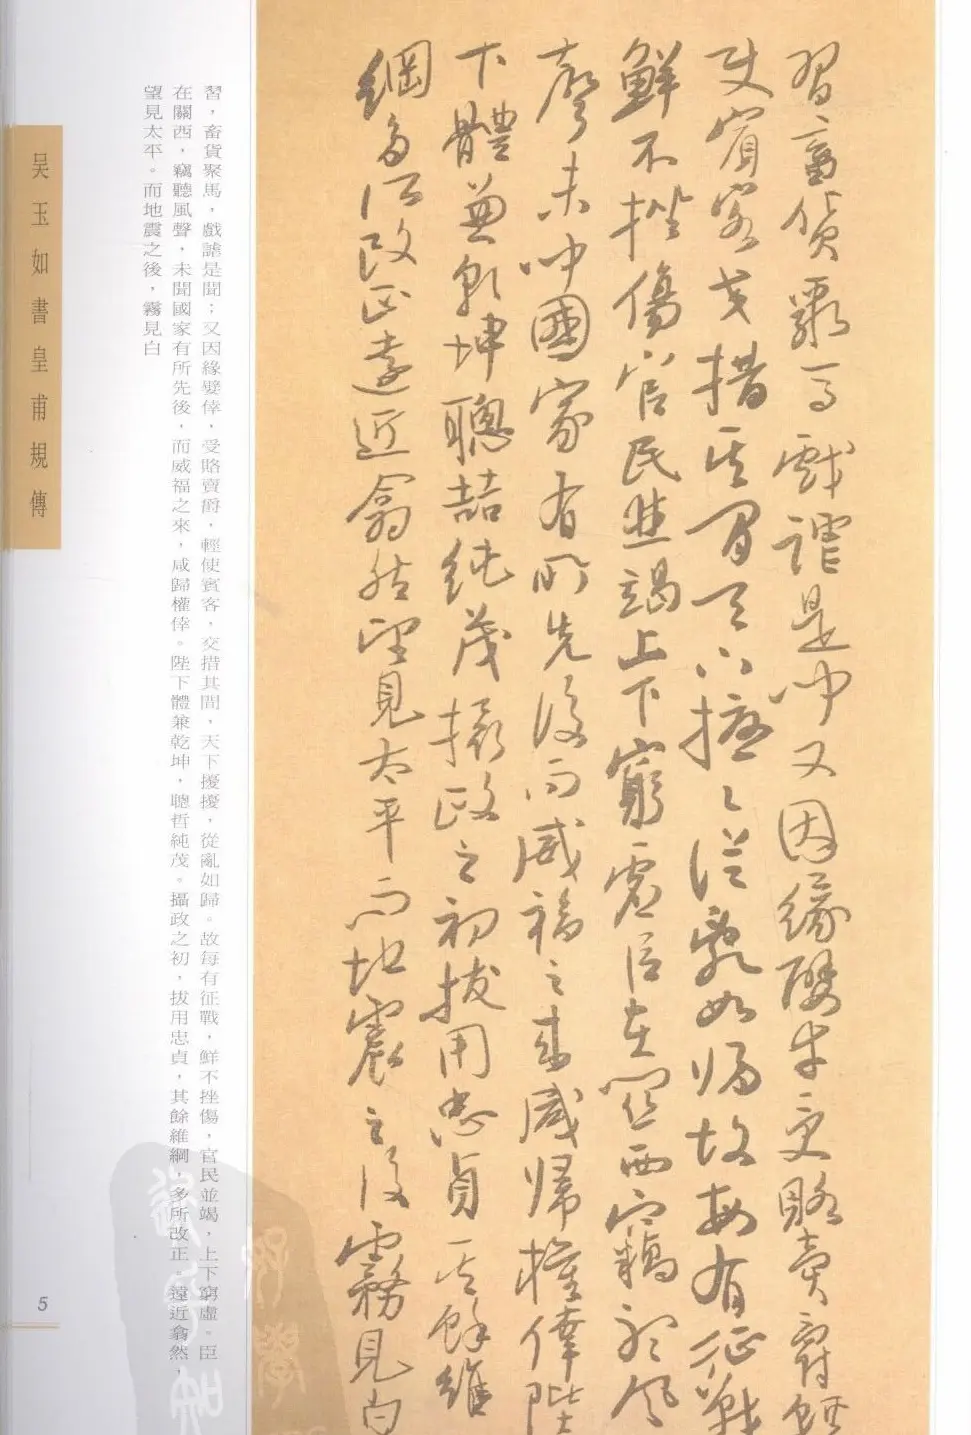 習畜貨聚馬戲謔是聞又因緣嬖幸受賂賣爵輕
使賓客交措其間天下擾々從亂如歸故每有征戰
鮮不挫傷官民並竭上下窮虛臣在關西竊聽風
聲未聞國家有所先後而威福之來咸歸權倖陛
下體兼乾坤聰喆純茂攝政之初拔用忠貞其餘維
綱多所改正遠近翕然望見太平而地震之後霧見白
習，畜貨聚馬，戲謔是聞；又因緣嬖倖，受賂賣爵，輕使賓客，交措其間，天下擾擾，從亂如歸。故每有征戰，鮮不挫傷，官民並竭，上下窮虛。臣
在關西，竊聽風聲，未聞國家有所先後，而威福之來，咸歸權倖。陛下體兼乾坤，聰哲純茂。攝政之初，拔用忠貞，其餘維綱，多所改正。遠近翕然，
望見太平。而地震之後，霧見白
吴玉如書皇甫規傳
5